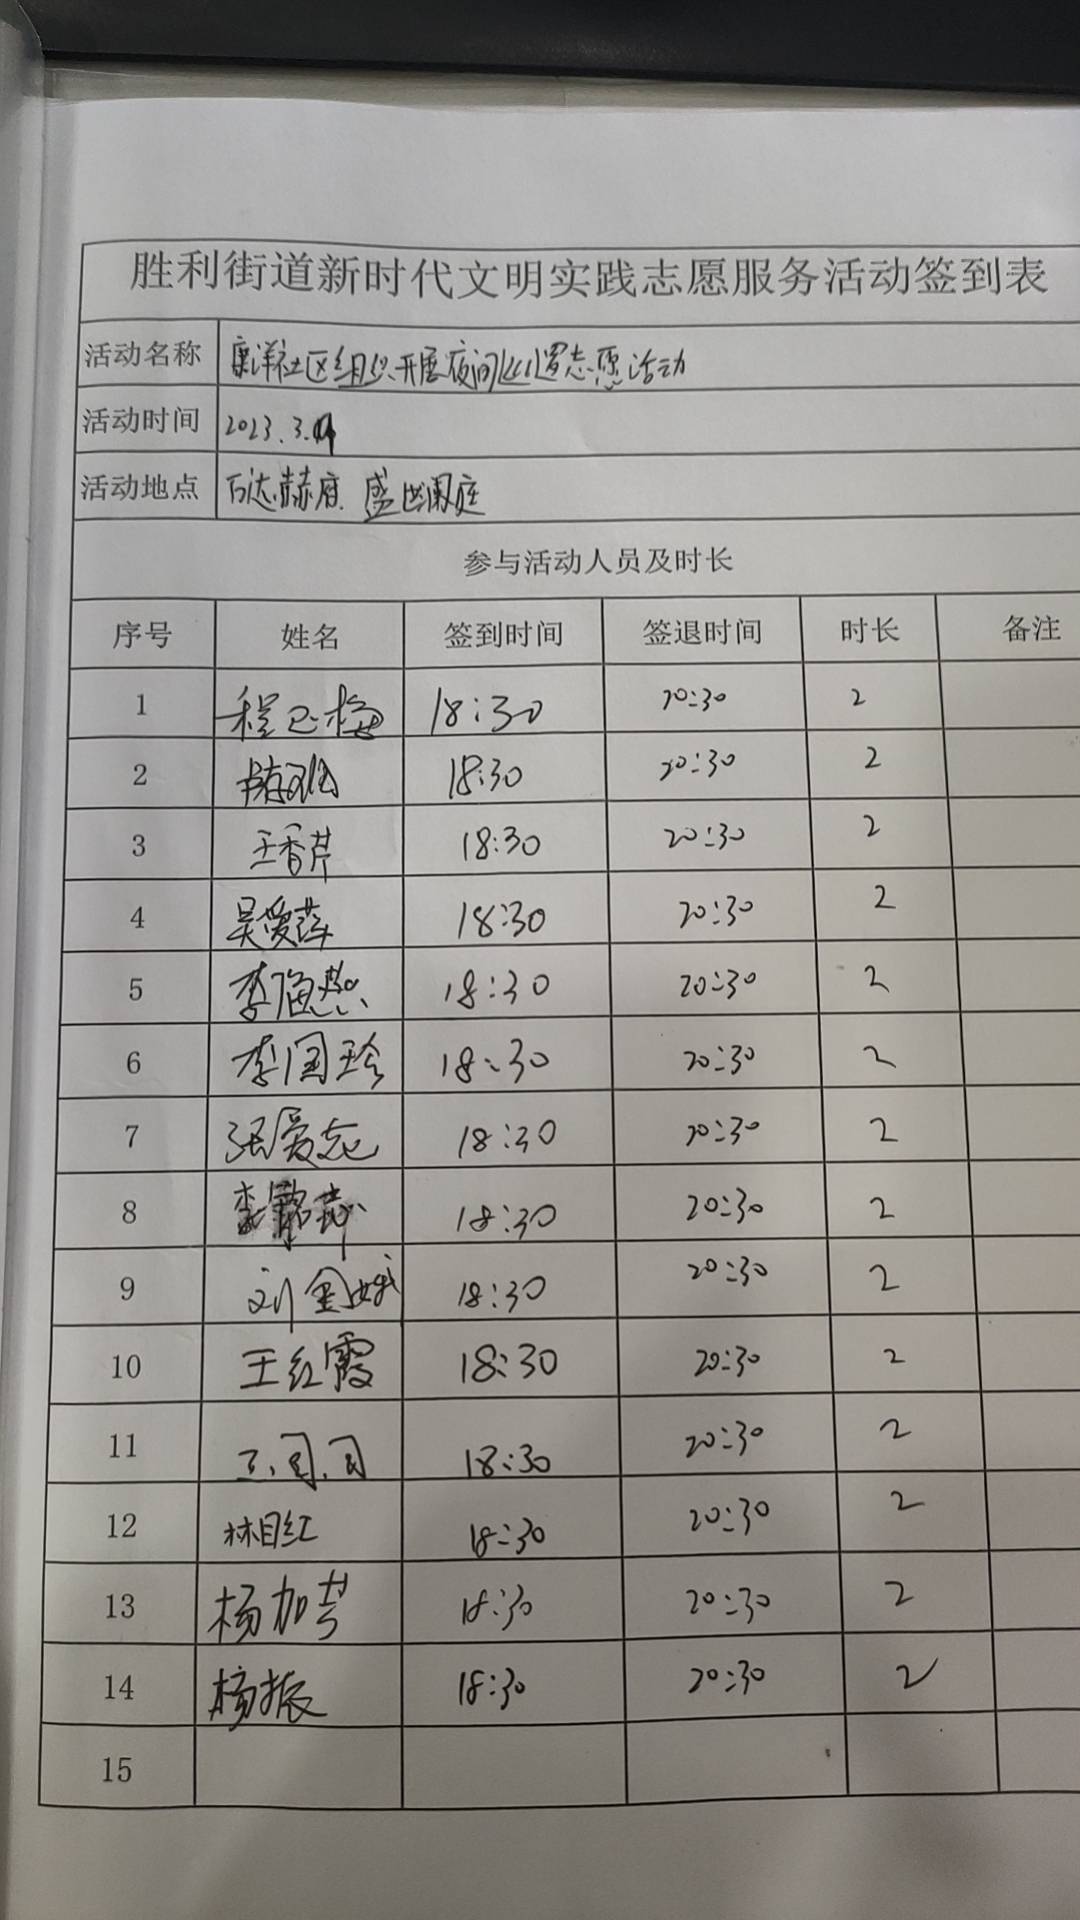 胜利街道新时代文明实践志愿服务活动签到表
活动名称 康洋社区组织开展夜间巡逻志愿活动
活动时间 2023.3.
活动地点 万达赫府 盛世闲庭
参与活动人员及时长
序号 姓名 签到时间 签退时间 时长 备注
1 程 梅 18:30 20:30 2
2 18:30 20:30 2
3 王香芹 18:30 20:30 2
4 吴爱萍 18:30 20:30 2
5 李 18:30 20:30 2
6 李国珍 18:30 20:30 2
7 张爱 18:30 20:30 2
8 李 18:30 20:30 2
9 刘金娥 18:30 20:30 2
10 王红霞 18:30 20:30 2
11 18:30 20:30 2
12 林目红 18:30 20:30 2
13 杨加芹 18:30 20:30 2
14 杨振 18:30 20:30 2
15